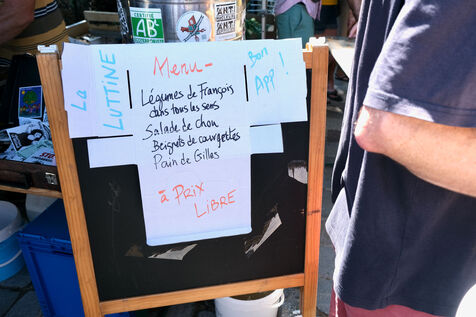 CERTIFIÉ
AB
La
LUTTINE
Menu-
Bon
APP !
Légumes de François
dans tous les sens
-Salade de chou
-Beignets de courgettes
-Pain de Gilles
à PRIX
LIBRE